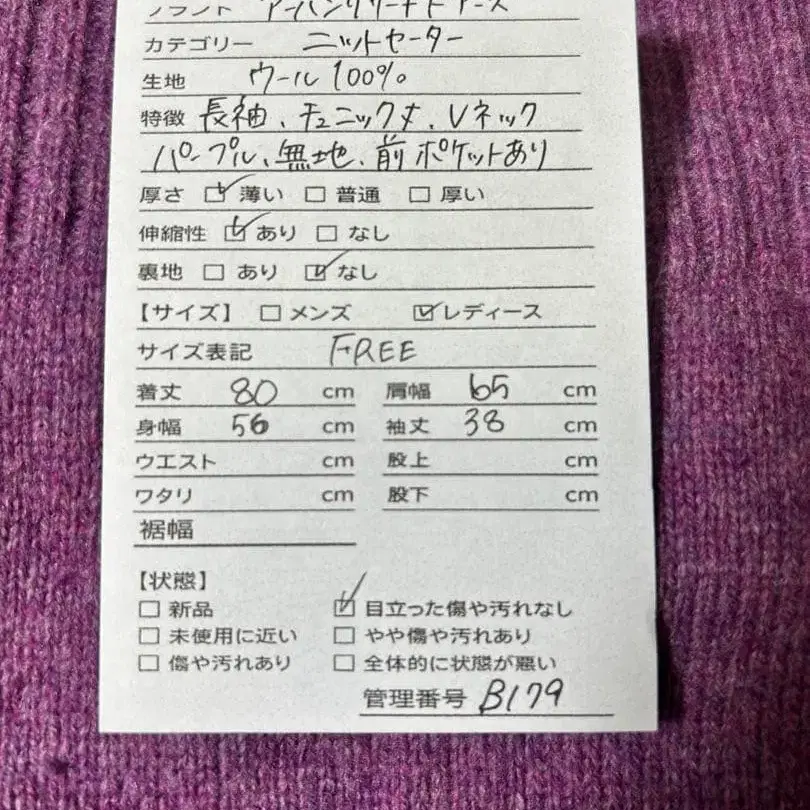 ブランド アーバンリサーチドアーズ
カテゴリー ニットセーター
生地 ウール100%
特徴 長袖、チュニック丈、Vネック
パープル、無地、前ポケットあり
厚さ ☑薄い □普通 □厚い
伸縮性 ☑あり □なし
裏地 □あり ☑なし
【サイズ】 □メンズ ☑レディース
サイズ表記 FREE
着丈 80 cm 肩幅 65 cm
身幅 56 cm 袖丈 38 cm
ウエスト cm 股上 cm
ワタリ cm 股下 cm
裾幅
【状態】
□新品 ☑目立った傷や汚れなし
□未使用に近い □やや傷や汚れあり
□傷や汚れあり □全体的に状態が悪い
管理番号 B179